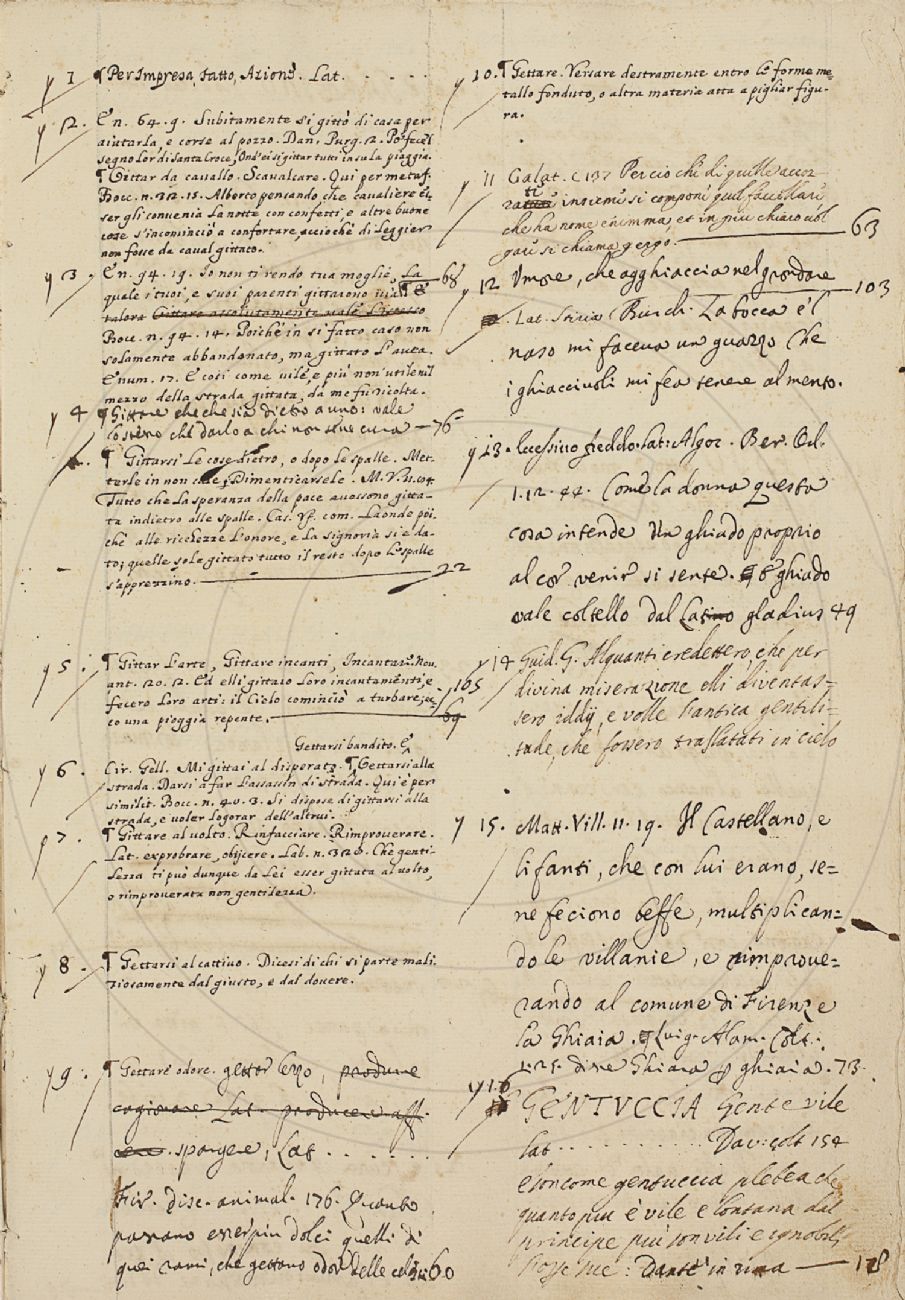 y 1 ¶ Per Impresa, fatto, Azione. Lat. . . . .
y 2. En. 64. 9. Subitamente si gittò di casa per
aiutarla, e corse al pozzo. Dan. Purg. 12.
segno lor di Santa Croce, Ond'ei si gittar tutti in su la piaggia.
¶ Gittar da cavallo. Scavalcare. Qui per metaf.
Bocc. n. 32. 15. Alberto pensando, che cavaliere es-
ser gli convenia la notte con confetti, e altre buone
cose s'incominciò a confortare, acciochè di leggier
non fosse da caval gittato.
y 3. En. 94. 19. Io non ti rendo tua moglie, La 68
quale i tuoi, e suoi parenti gittarono via. ¶ E
talora Gittare assolutamente vale l'istesso
Bocc. n. 94. 14. Poichè in sì fatto caso non
solamente abbandonato, ma gittato l'avea.
E num. 17. E così come vile, e più non utile nel
mezzo della strada gittata, da me fu ricolta.
y 4 ¶ Gittare che che sia dietro a uno: vale
lo stesso che darlo a chi non cura — 76
¶ Gittarsi le cose dietro, o dopo le spalle. Met-
terle in non cale, Dimenticarsele. M. V. 11.
Tutto che la speranza della pace avessono gitta-
ta indietro alle spalle. Cas. Uf. com. Laonde poi-
chè alle ricchezze l'onore, e la signoria si è da-
to; quelle sole gittato tutto il resto dopo le spalle
s'apprezzino. — 22
y 5. ¶ Gittar l'arte, Gittare incanti, Incantare. Nov.
ant. 20. 2. Ed elli gittaro loro incantamenti, e
fecero loro arti: il Cielo cominciò a turbare, ec- 105
co una pioggia repente. — 69
Gettarsi bandito. E
y 6. Cir. Gell. Mi gittai al disperato. ¶ Gettarsi alla
strada. Darsi a far l'assassin di strada. Qui è per
similit. Bocc. n. 40. 3. Si dispose di gittarsi alla
strada, e voler logorar dell'altrui.
y 7. ¶ Gittare al volto. Rinfacciare. Rimproverare.
Lat. exprobrare, obijcere. Lab. n. 320. Che genti-
lezza ti può dunque da lei esser gittata al volto,
o rimproverata non gentilezza.
y 8. ¶ Gettarsi al cattivo. Dicesi di chi si parte mali-
ziosamente dal giusto, e dal dovere.
y 9. ¶ Gettare odore. gettar lezzo, produrre
cagionare Lat. producere aff.
spargere, Lat. . . . . . .
Fir. disc. animal. 176. Quanto
passano esser più dolci quelli di
quei rami, che gettono odor delle 60
y 10. ¶ Gettare. Versare destramente entro le forme me-
tallo fonduto, o altra materia atta a pigliar figu-
ra.
y 11 Galat. c 137 Perciò che di quelle accoz-
zati insieme si compone quel favellare
che ha nome enimma, et in più chiaro vol-
gare si chiama gergo. — 63
y 12 Umore, che agghiaccia nel grondare — 103
Lat. Stiria Burch. La bocca e 'l
naso mi faceva un guazzo Che
i ghiacciuoli mi fea tenere al mento.
y 13. Eccessivo freddo. Lat. Algor. Ber. Orl.
1. 12. 44. Come la donna questa
cosa intende Un ghiado proprio
al cor venir si sente. ¶ E ghiado
vale coltello dal Latino gladius 49
y 14 Guid. G. Alquanti credettero, che per
divina miserazione elli diventas-
sero iddij, e volle l'antica gentili-
tade, che fossero traslatati in cielo
y 15. Matt. Vill. 11. 19. Il Castellano, e
li fanti, che con lui erano, se-
ne feciono beffe, multiplican-
do le villanie, e rimprove-
rando al comune di Firenze
la Ghiaia. ¶ Luig. Alam. Colt.
125. disse Ghiara p ghiaia. 73.
y 16 GENTUCCIA Gente vile
lat . . . . . . . . . . . Dav: colt 154
e son come gentuccia plebea che
quanto più è vile e lontana dal
principe più son vili e ignobili
Dante in rima — 178